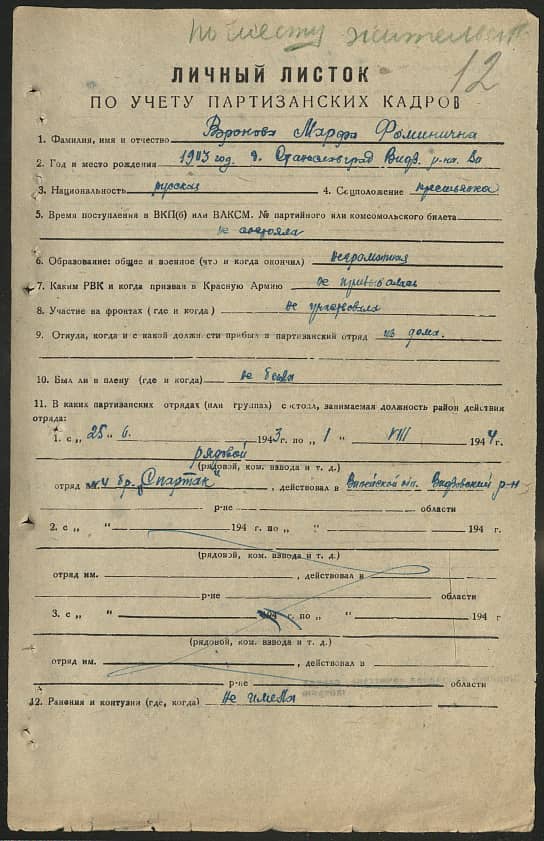 по месту жительст
12
ЛИЧНЫЙ ЛИСТОК
ПО УЧЕТУ ПАРТИЗАНСКИХ КАДРОВ
1. Фамилия, имя и отчество Воронова Марфа Фоминична
2. Год и место рождения 1903 год. д. Видз. р-на Ви
3. Национальность русская 4. Соцположение крестьянка
5. Время поступления в ВКП(б) или ВЛКСМ. № партийного или комсомольского билета
не состояла
6. Образование: общее и военное (что и когда окончил) неграмотная
7. Каким РВК и когда призван в Красную Армию не призывалась
8. Участие на фронтах (где и когда) не участвовала
9. Откуда, когда и с какой должности прибыл в партизанский отряд из дома.
10. Был ли в плену (где и когда) не была
11. В каких партизанских отрядах (или группах) состоял, занимаемая должность район действия
отряда:
1. с „ 25 6. 1943 г. по „ 1 " VIII 1944 г.
рядовой
(рядовой, ком. взвода и т. д.)
отряд №4 бр. „Спартак", действовал в Вилейской обл. Видзовский р-н
р-не области
2. с „ " 194 г. по „ " 194 г
(рядовой, ком. взвода и т. д.)
отряд им. , действовал в
р-не области
3. с „ " 194 г. по „ " 194 г
(рядовой, ком. взвода и т. д.)
отряд им. , действовал в
р-не области
12. Ранения и контузии (где, когда) не имела